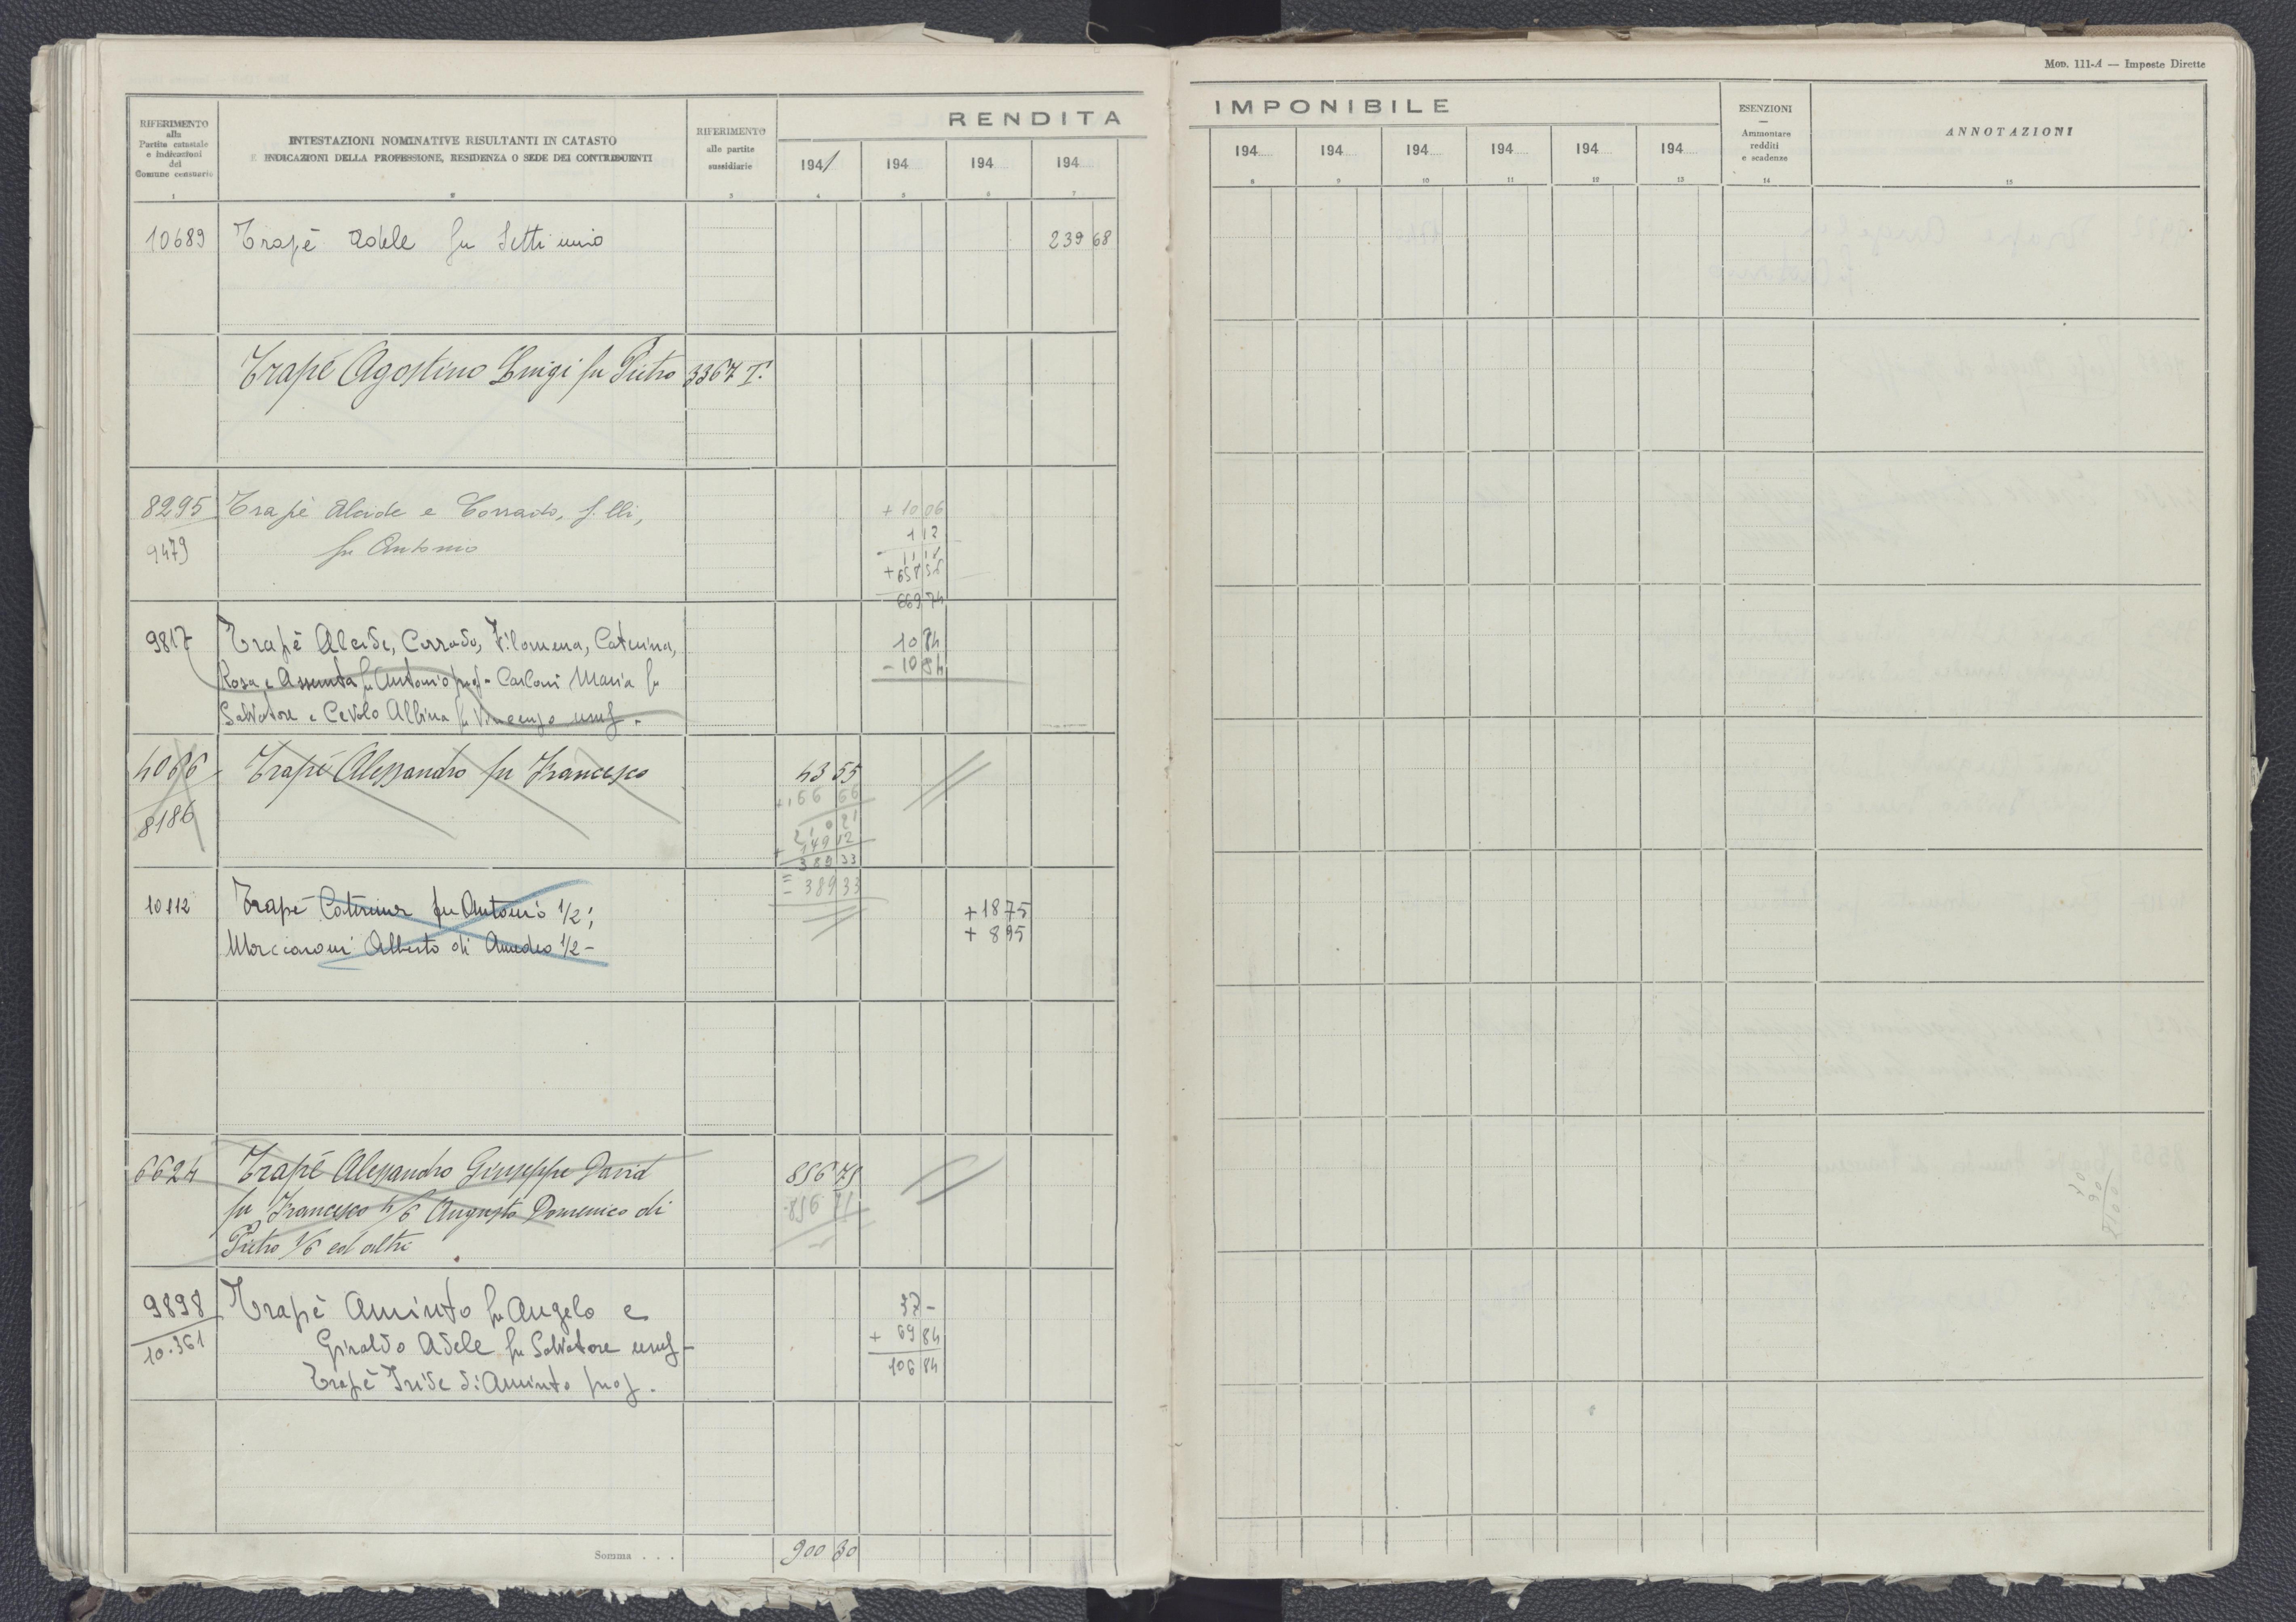 Mod. 111-A — Imposte Dirette
RIFERIMENTO
alla
Partita catastale
e indicazioni
del
Comune censuario
1
INTESTAZIONI NOMINATIVE RISULTANTI IN CATASTO
E INDICAZIONI DELLA PROFESSIONE, RESIDENZA O SEDE DEI CONTRIBUENTI
2
RIFERIMENTO
alle partite
sussidiarie
3
RENDITA IMPONIBILE
1941 194 194 194 194 194 194 194 194 194
4 5 6 7 8 9 10 11 12 13
ESENZIONI
—
Ammontare
redditi
e scadenze
14
ANNOTAZIONI
15
10689 Trapè Adele fu Settimio 239 68
Trapè Agostino Luigi fu Pietro 3367 T.
8295 Trapè Alcide e Corrado, f.lli, + 10 06
9479 fu Antonio 1 12
11 18
+ 658 56
669 74
9817 Trapè Alcide, Corrado, Filomena, Caterina, 10 84
Rosa e Assunta fu Antonio prop - Carloni Maria fu - 10 84
Salvatore e Cevolo Albina fu Vincenzo usuf -
4066 Trapè Alessandro fu Francesco 43 55
+ 166 66
8186 210 21
+ 149 12
389 33
= 389 33
10112 Trapè Caterina fu Antonio 1/2; + 18 75
Marciaroni Alberto di Amedeo 1/2 - + 8 95
6624 Trapè Alessandro Giuseppe David 856 75
fu Francesco 4/6 Augusto Domenico di
Pietro 1/6 ed altri
9898 Trapè Aminto fu Angelo e 37 -
10.361 Giraldo Adele fu Salvatore usuf - + 69 84
Trapè Iride di Aminto prop. 106 84
Somma . . . 900 30